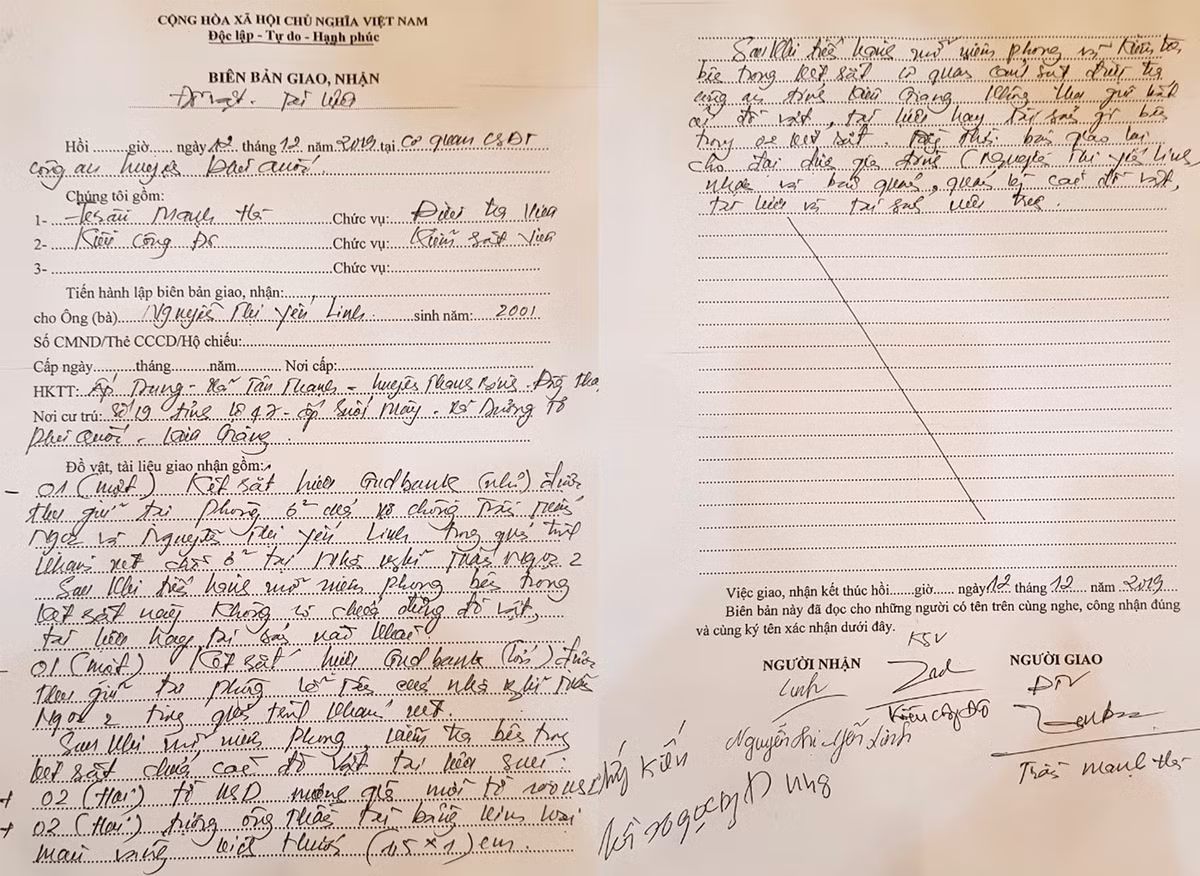 CỘNG HÒA XÃ HỘI CHỦ NGHĨA VIỆT NAM
Độc lập - Tự do - Hạnh phúc
BIÊN BẢN GIAO, NHẬN
Đồ vật. Tài liệu
Hồi ......giờ...... ngày 12 tháng 12 năm 2019 tại Cơ quan CSĐT
Công an huyện Phú Quốc.
Chúng tôi gồm:
1- Trần Mạnh Hà Chức vụ: Điều tra viên
2- Kiều Công Đô Chức vụ: Kiểm sát viên
3- Chức vụ:
Tiến hành lập biên bản giao, nhận:
cho Ông (bà) Nguyễn Thị Yến Linh sinh năm: 2001
Số CMND/Thẻ CCCD/Hộ chiếu:
Cấp ngày......tháng......năm...... Nơi cấp:
HKTT: Ấp Trung - Xã Tân Thạnh - huyện Thanh Bình - Đồng Tháp
Nơi cư trú: Số 19 tỉnh lộ 47 - ấp Suối Mây - xã Dương Tơ
Phú Quốc - Kiên Giang.
Đồ vật, tài liệu giao nhận gồm:
- 01 (một) Két sắt hiệu Gudbank (nhỏ) được
thu giữ tại phòng ở của vợ chồng Trần
Ngọc và Nguyễn Thị Yến Linh trong quá trình
khám xét chỗ ở tại Nhà nghỉ Ngọc 2
Sau khi tiến hành mở niêm phong bên trong
két sắt này không có chứa đựng đồ vật,
tài liệu hay tài sản nào khác
- 01 (một) Két sắt hiệu Gudbank (lớn) được
thu giữ tại phòng của nhà nghỉ
Ngọc 2 trong quá trình khám xét.
Sau khi mở niêm phong, kiểm tra bên trong
két sắt chứa các đồ vật tài liệu sau:
+ 02 (Hai) tờ USD mệnh giá mỗi tờ 100 USD
+ 02 (Hai) tượng ông Thần tài bằng kim loại
màu vàng kích thước (1,5 x 1) cm.
Sau khi tiến hành mở niêm phong và kiểm tra
bên trong két sắt cơ quan cảnh sát điều tra
công an tỉnh Kiên Giang không thu giữ bất
cứ đồ vật, tài liệu hay tài sản gì bên
trong két sắt. bàn giao lại
cho đại diện gia đình (Nguyễn Thị Yến Linh
nhận và bảo quản, quản lý các đồ vật,
tài liệu và tài sản nêu trên.
Việc giao, nhận kết thúc hồi......giờ...... ngày 12 tháng 12 năm 2019
Biên bản này đã đọc cho những người có tên trên cùng nghe, công nhận đúng
và cùng ký tên xác nhận dưới đây.
KSV
NGƯỜI NHẬN NGƯỜI GIAO
Linh ĐTV
Kiều Công Đô
Nguyễn Thị Yến Linh
Trần Mạnh Hà
ý kiến